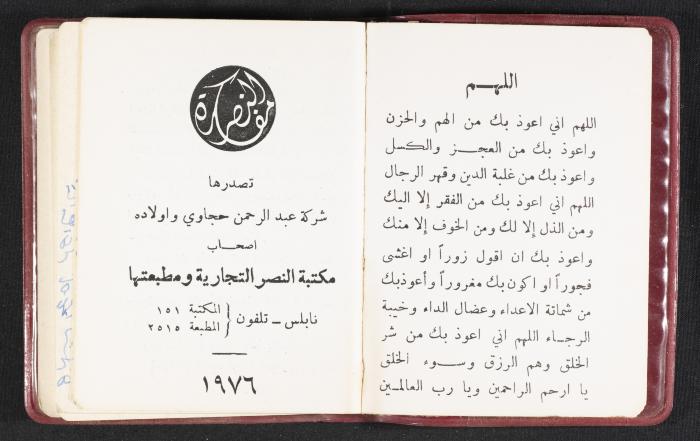 مفكرة النصر
تصدرها
شركة عبد الرحمن حجاوي واولاده
اصحاب
مكتبة النصر التجارية ومطبعتها
نابلس - تلفون { المكتبة ١٥١
المطبعة ٢٥١٥
١٩٧٦
اللهم
اللهم اني اعوذ بك من الهم والحزن
واعوذ بك من العجز والكسل
واعوذ بك من غلبة الدين وقهر الرجال
اللهم اني اعوذ بك من الفقر إلا اليك
ومن الذل إلا لك ومن الخوف إلا منك
واعوذ بك ان اقول زوراً او اغشى
فجوراً او اكون بك مغروراً وأعوذ بك
من شماتة الاعداء وعضال الداء وخيبة
الرجاء اللهم اني اعوذ بك من شر
الخلق وهم الرزق وسوء الخلق
يا ارحم الراحمين ويا رب العالمين